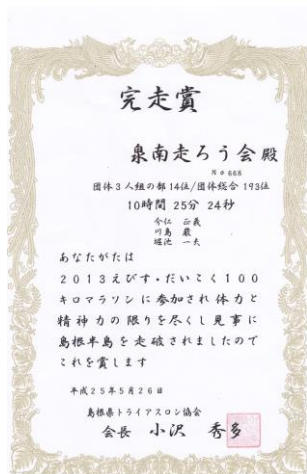 完走賞
泉南走ろう会 殿
No 668
団体3人組の部 14位/団体総合 193位
10時間 25分 24秒
今仁 正義
川島 巌
堀池 一夫
あなたがたは
2013えびす・だいこく100
キロマラソンに参加され体力と
精神力の限りを尽くし見事に
島根半島を走破されましたので
これを賞します
平成25年5月26日
島根県トライアスロン協会
会長 小沢 秀多